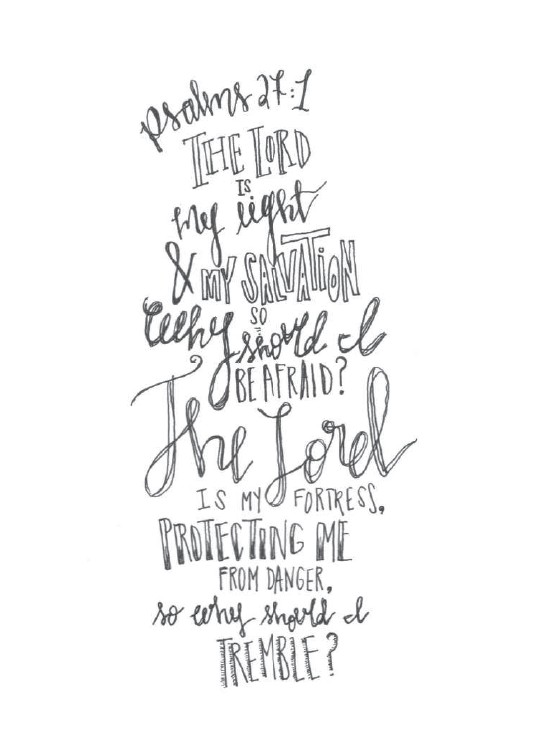 psalms 27:1
THE LORD
IS
my light
& MY SALVATION
SO
Why should I
BE AFRAID?
The Lord
IS MY FORTRESS,
PROTECTING ME
FROM DANGER,
so why should I
TREMBLE?